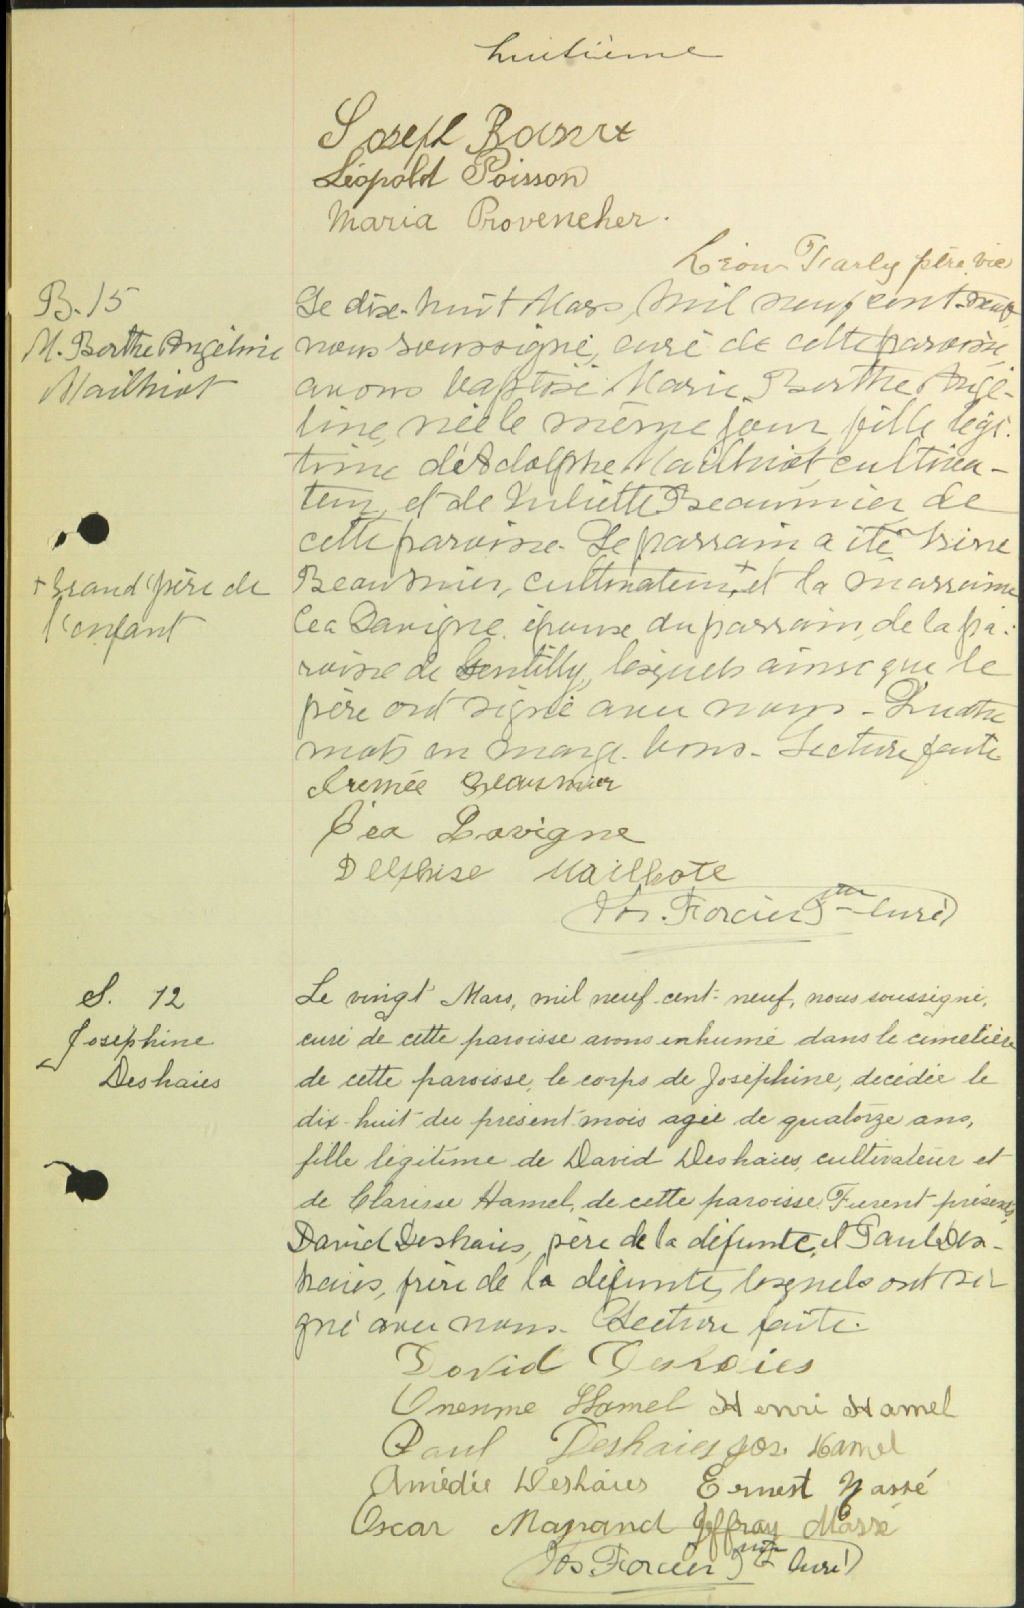 huitième
Joseph
Léopold Poisson
Maria Provencher.
Léon ptre vic
B. 15
M. Berthe Angéline
Mailhiot
Le dix-huit Mars, mil neuf cent-neuf,
nous soussigné, curé de cette paroisse,
avons baptisé Marie Berthe Angé-
line, née le même jour, fille légi-
time d'Adolphe Mailhiot, cultiva-
teur, et de Juliette Beaumier de
cette paroisse. Le parrain a été
Beaumier, cultivateur,+ et la marraine
Léa Lavigne, épouse du parrain, de la pa-
roisse de Gentilly, lesquels ainsi que le
père ont signé avec nous. Quatre
mots en marge bons. Lecture faite
+ Grand'père de
l'enfant
Beaumier
Léa Lavigne
Mailhote
Jos. Forcier Ptre Curé
S. 12
Joséphine
Deshaies
Le vingt Mars, mil neuf-cent-neuf, nous soussigné,
curé de cette paroisse avons inhumé dans le cimetière
de cette paroisse, le corps de Joséphine, décédée le
dix-huit du présent mois agée de quatorze ans,
fille légitime de David Deshaies, cultivateur et
de Clarisse Hamel, de cette paroisse. Furent présents
David Deshaies, père de la défunte, et Paul Des-
haies, frère de la défunte, lesquels ont si-
gné avec nous. Lecture faite.
David Deshaies
Onesime Hamel Henri Hamel
Paul Deshaies Jos. Hamel
Amédée Deshaies Ernest Massé
Oscar Mayrand Jeffray Massé
Jos Forcier Ptre Curé